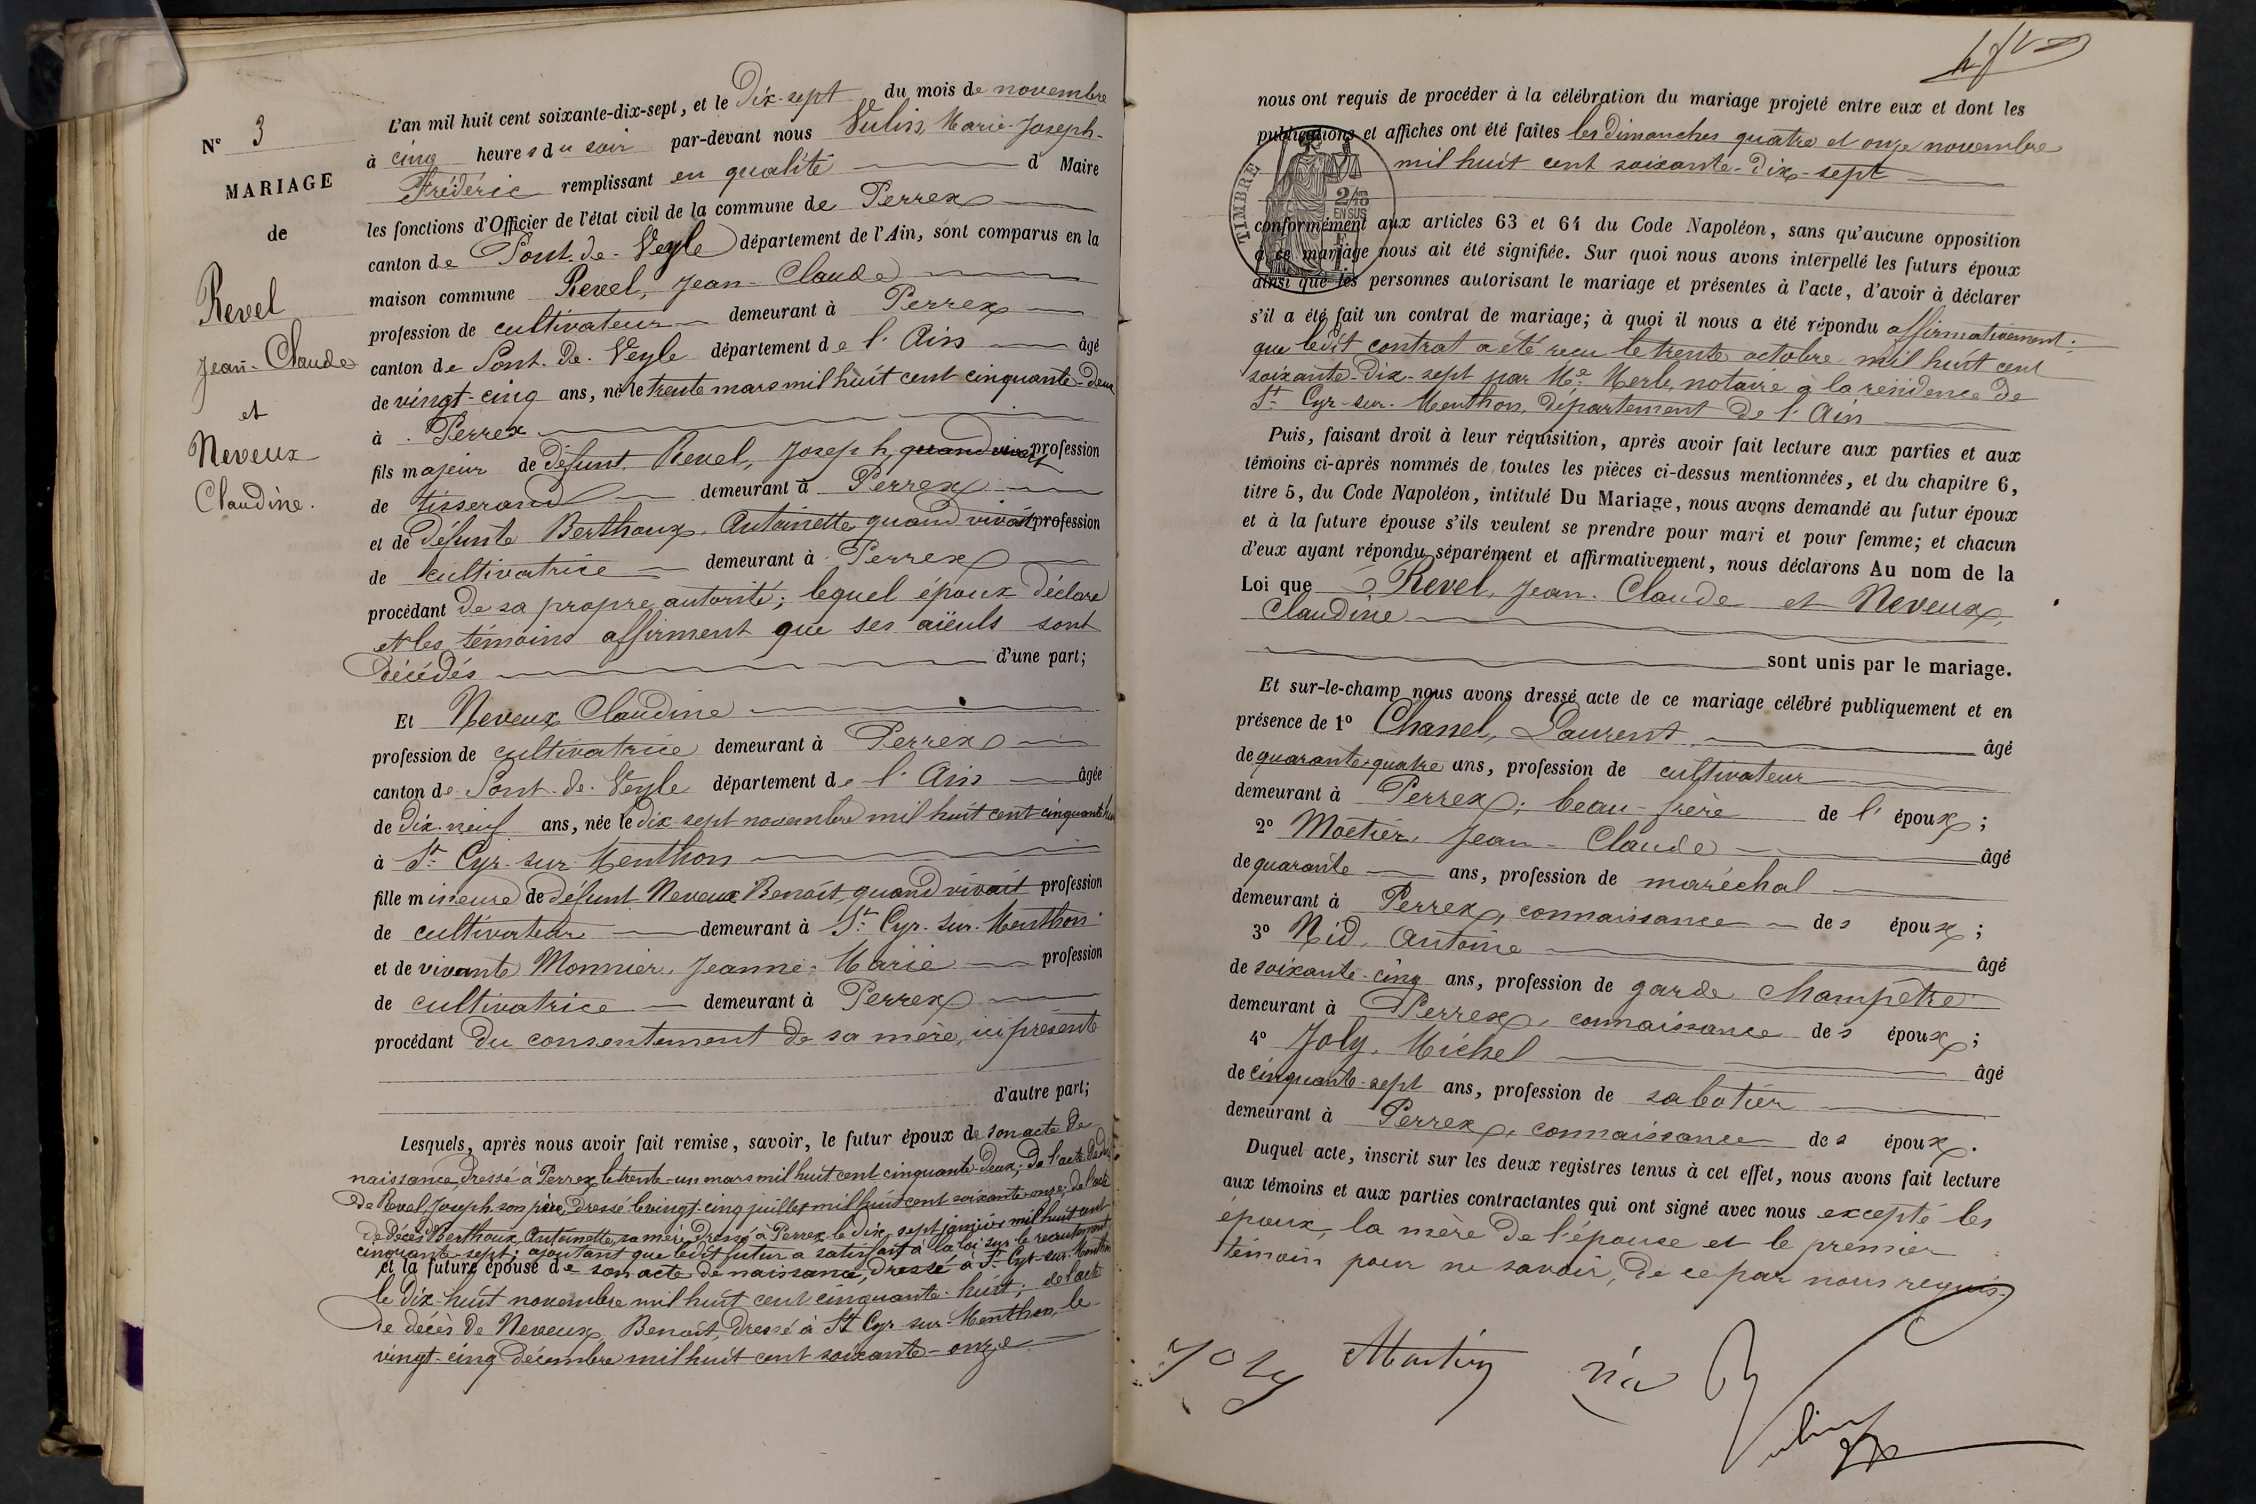 N° 3
MARIAGE
de
Revel
Jean-Claude
et
Neveux
Claudine.
L'an mil huit cent soixante-dix-sept, et le Dix-sept du mois de novembre
à cinq heures du soir par-devant nous Vulin, Marie-Joseph-
Frédéric remplissant en qualité d Maire
les fonctions d'Officier de l'état civil de la commune de Perrex
canton de Pont-de-Veyle département de l'Ain, sont comparus en la
maison commune Revel, Jean-Claude
profession de cultivateur demeurant à Perrex
canton de Pont-de-Veyle département de l'Ain âgé
de vingt-cinq ans, né le trente mars mil huit cent cinquante-deux
à Perrex
fils majeur de défunt Revel, Joseph, quand vivait profession
de tisserand demeurant à Perrex
et de défunte Berthoux, Antoinette quand vivait profession
de cultivatrice demeurant à Perrex
procédant de sa propre autorité; lequel époux déclare
et les témoins affirment que ses aïeuls sont
décédés d'une part;
Et Neveux Claudine
profession de cultivatrice demeurant à Perrex
canton de Pont-de-Veyle département de l'Ain âgée
de dix-neuf ans, née le dix-sept novembre mil huit cent cinquante huit
à St Cyr-sur-Menthon
fille mineure de défunt Neveux Benoît, quand vivait profession
de cultivateur demeurant à St Cyr-sur-Menthon
et de vivante Monnier, Jeanne-Marie profession
de cultivatrice demeurant à Perrex
procédant du consentement de sa mère, ici présente
d'autre part;
Lesquels, après nous avoir fait remise, savoir, le futur époux de son acte de
naissance, dressé à Perrex le trente-un mars mil huit cent cinquante-deux; de l'acte de décès
de Revel, Joseph, son père, dressé le vingt-cinq juillet mil huit cent soixante-onze; de l'acte
de décès de Berthoux Antoinette, sa mère, dressé à Perrex le dix-sept janvier mil huit cent
cinquante-sept; ajoutant que ledit futur a satisfait à la loi sur le recrutement
et la future épouse de son acte de naissance, dressé à St Cyr-sur-Menthon
le dix-huit novembre mil huit cent cinquante-huit; de l'acte
de décès de Neveux, Benoît, dressé à St Cyr-sur-Menthon, le
vingt-cinq décembre mil huit cent soixante-onze
nous ont requis de procéder à la célébration du mariage projeté entre eux et dont les
publications et affiches ont été faites les dimanches quatre et onze novembre
mil huit cent soixante-dix-sept
TIMBRE
2/10
EN SUS
conformément aux articles 63 et 64 du Code Napoléon, sans qu'aucune opposition
à ce mariage nous ait été signifiée. Sur quoi nous avons interpellé les futurs époux
ainsi que les personnes autorisant le mariage et présentes à l'acte, d'avoir à déclarer
s'il a été fait un contrat de mariage; à quoi il nous a été répondu affirmativement;
que ledit contrat a été reçu le trente octobre mil huit cent
soixante-dix-sept par Me Merle, notaire à la résidence de
St Cyr-sur-Menthon, département de l'Ain
Puis, faisant droit à leur réquisition, après avoir fait lecture aux parties et aux
témoins ci-après nommés de toutes les pièces ci-dessus mentionnées, et du chapitre 6,
titre 5, du Code Napoléon, intitulé Du Mariage, nous avons demandé au futur époux
et à la future épouse s'ils veulent se prendre pour mari et pour femme; et chacun
d'eux ayant répondu séparément et affirmativement, nous déclarons Au nom de la
Loi que Revel, Jean-Claude et Neveux,
Claudine
sont unis par le mariage.
Et sur-le-champ nous avons dressé acte de ce mariage célébré publiquement et en
présence de 1° Chanel, Laurent âgé
de quarante-quatre ans, profession de cultivateur
demeurant à Perrex; beau-frère de l' époux;
2° Moetier, Jean-Claude âgé
de quarante ans, profession de maréchal
demeurant à Perrex, connaissance des époux;
3° Nid, Antoine âgé
de soixante-cinq ans, profession de garde champêtre
demeurant à Perrex, connaissance des époux;
4° Joly, Michel âgé
de cinquante-sept ans, profession de sabotier
demeurant à Perrex, connaissance des époux.
Duquel acte, inscrit sur les deux registres tenus à cet effet, nous avons fait lecture
aux témoins et aux parties contractantes qui ont signé avec nous excepté les
époux, la mère de l'épouse et le premier
témoin pour ne savoir, de ce par nous requis.
Joly
Nid
Vulin